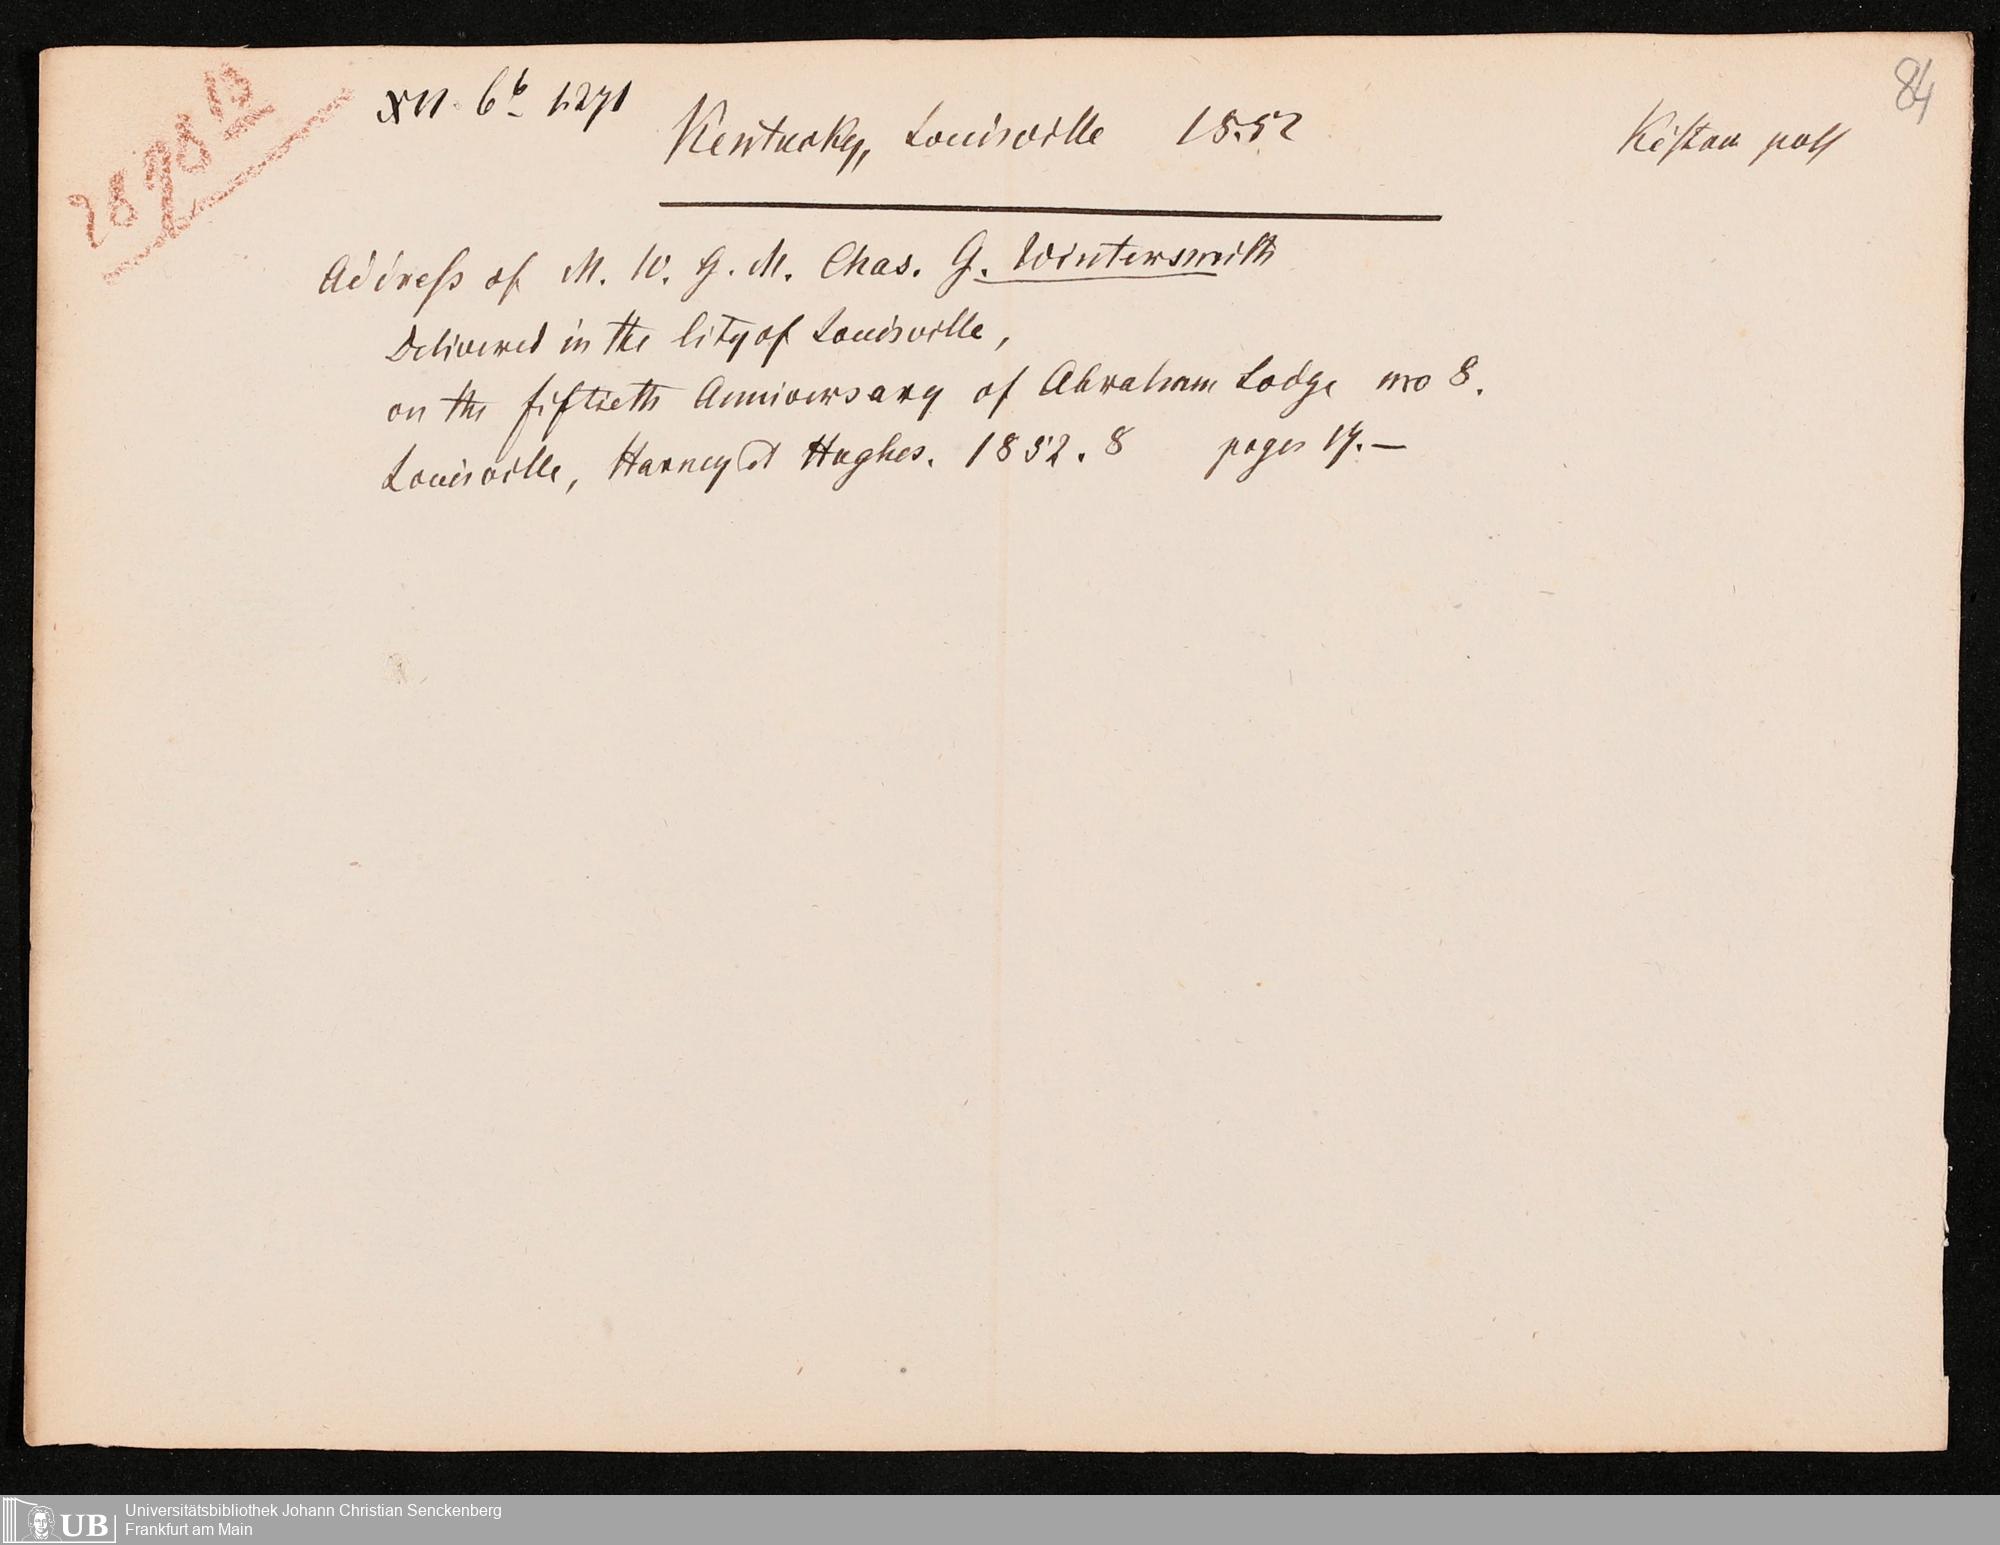 84
XII. 6b 1271
Kentucky, Louisville 1852
Addreſs of M. W. G. M. Chas. G. Wintersmith
Delivered in the City of Louisville,
on the fiftieth Anniversary of Abraham Lodge no 8.
Louisville, Harney & Hughes. 1852. 8 pages 17. —
UB
Universitätsbibliothek Johann Christian Senckenberg
Frankfurt am Main